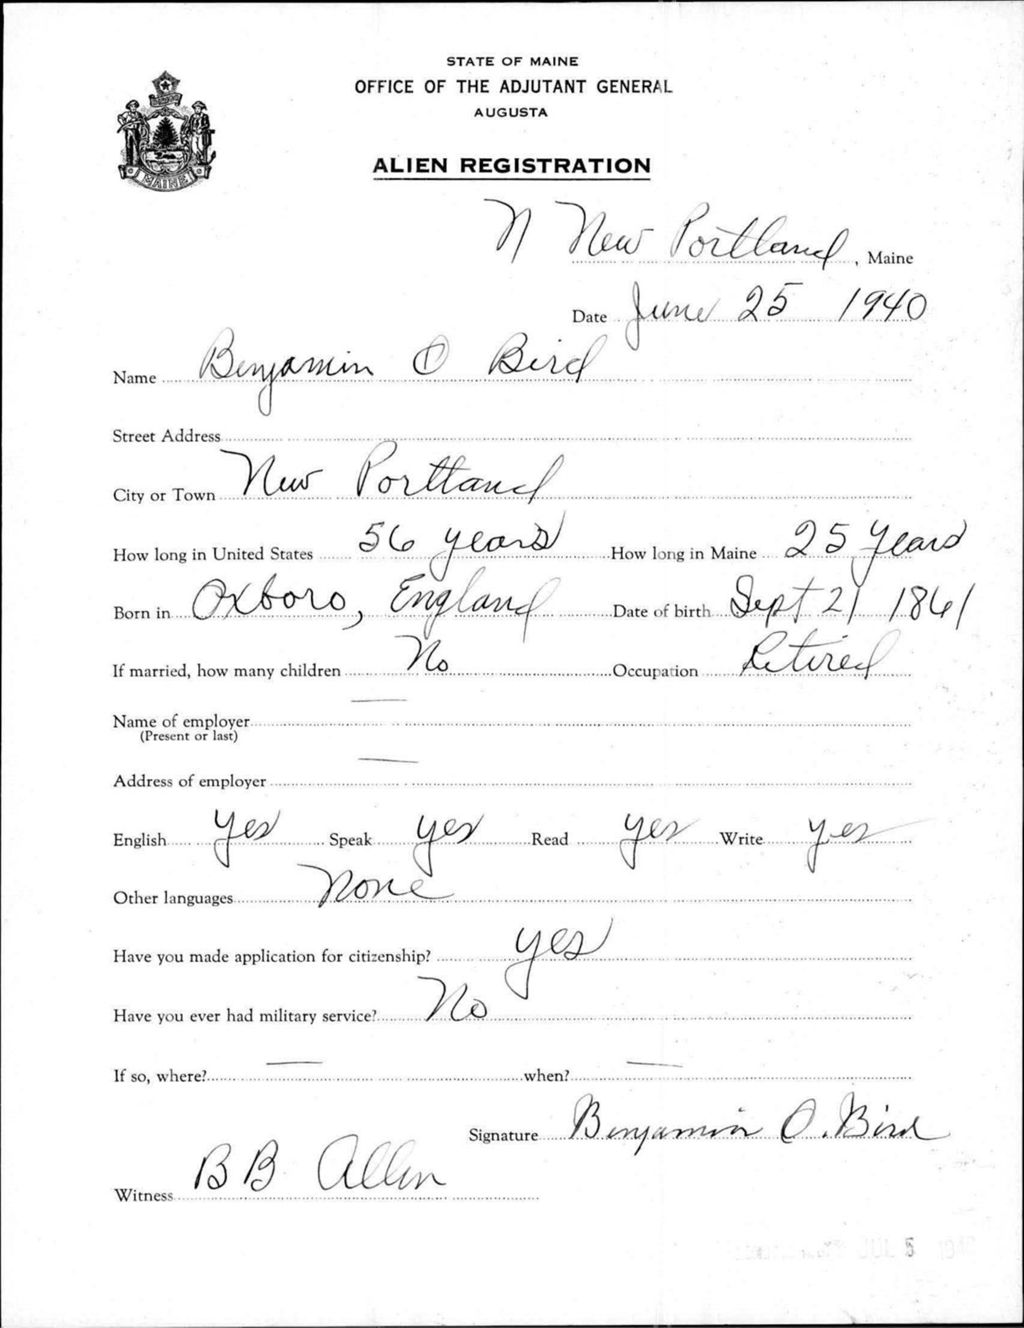 STATE OF MAINE
OFFICE OF THE ADJUTANT GENERAL
AUGUSTA
ALIEN REGISTRATION
MAINE
N New Portland, Maine
Date June 25 1940
Name Benjamin O Bird
Street Address
City or Town New Portland
How long in United States 56 years How long in Maine 25 Years
Born in Oxboro, England Date of birth Sept 21 1861
If married, how many children No Occupation Retired
Name of employer
(Present or last)
Address of employer
English yes Speak yes Read yes Write yes
Other languages None
Have you made application for citizenship? yes
Have you ever had military service? No
If so, where? — when? —
Signature Benjamin O. Bird
Witness B B Allen
JUL 5